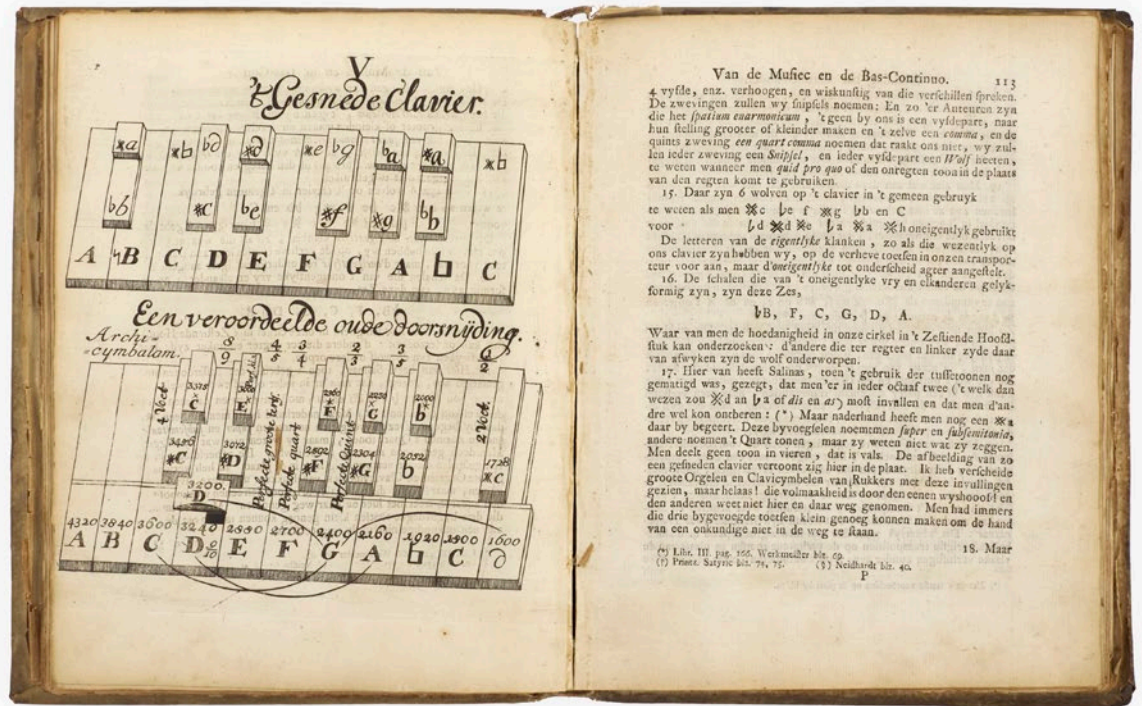 V
't Gesnede Clavier.
※a ※b bd ※d ※e bg ba ※a ※b
bb ※c be ※f ※g bb
A ♮B C D E F G A ♮ C
Een veroordeelde oude doorsnijding.
Archi-
-cymbalam.
8/9 4/5 3/4 2/3 3/5 1/2
4 Voet
Perfecte groote terts.
Perfecte quart
Perfecte Quint
2 Voet.
3456 3072 2592 2304 2052 1728
※C ※D ※F ※G b ※C
3200.
D
4320 3840 3600 3240 2880 2700 2400 2160 1920 1800 1600
A B C D E F G A ♮ C d
Van de Musiec en de Bas-Continuo. 113
4 vyfde, enz. verhoogen, en wiskunstig van die verschillen spreken.
De zwevingen zullen wy snipsels noemen: En zo 'er Auteuren zyn
die het spatium enarmonicum, 't geen by ons is een vyfdepart, naar
hun stelling grooter of kleinder maken en 't zelve een comma, en de
quints zweving een quart comma noemen dat raakt ons niet, wy zul-
len ieder zweving een Snipsel, en ieder vyfdepart een Wolf heeten,
te weten wanneer men quid pro quo of den onregten toon in de plaats
van den regten komt te gebruiken.
15. Daar zyn 6 wolven op 't clavier in 't gemeen gebruyk
te weten als men ※c be f ※g bb en C
voor bd ※d ※e ba ※a ※h oneigentlyk gebruikt
De letteren van de eigentlyke klanken, zo als die wezentlyk op
ons clavier zyn hebben wy, op de verheve toetsen in onzen transpor-
teur voor aan, maar d'oneigentlyke tot onderscheid agter aangestelt.
16. De schalen die van 't oneigentlyke vry en elkanderen gelyk-
formig zyn, zyn deze Zes,
bB, F, C, G, D, A.
Waar van men de hoedanigheid in onze cirkel in 't Zestiende Hoofd-
stuk kan onderzoeken: d'andere die ter regter en linker zyde daar
van afwyken zyn de wolf onderworpen.
17. Hier van heeft Salinas, toen 't gebruik der tussetoonen nog
gematigd was, gezegt, dat men 'er in ieder octaaf twee ('t welk dan
wezen zou ※d an ba of dis en as) most invullen en dat men d'an-
dre wel kon ontberen: (*) Maar naderhand heeft men nog een ※a
daar by begeert. Deze byvoegselen noemtmen super en subsemitonia,
andere noemen 't Quart tonen, maar zy weten niet wat zy zeggen.
Men deelt geen toon in vieren, dat is vals. De afbeelding van zo
een gesneden clavier vertoont zig hier in de plaat. Ik heb verscheide
groote Orgelen en Clavicymbelen van Rukkers met deze invullingen
gezien, maar helaas! die volmaakheid is door den eenen wyshooofd en
den anderen weet niet hier en daar weg genomen. Men had immers
die drie bygevoegde toetsen klein genoeg konnen maken om de hand
van een onkundige niet in de weg te staan.
18. Maar
(*) Libr. III. pag. 166. Werkmeister blz. 69.
(†) Printz Satyric blz. 74, 75. (§) Neidhardt blz. 40.
P